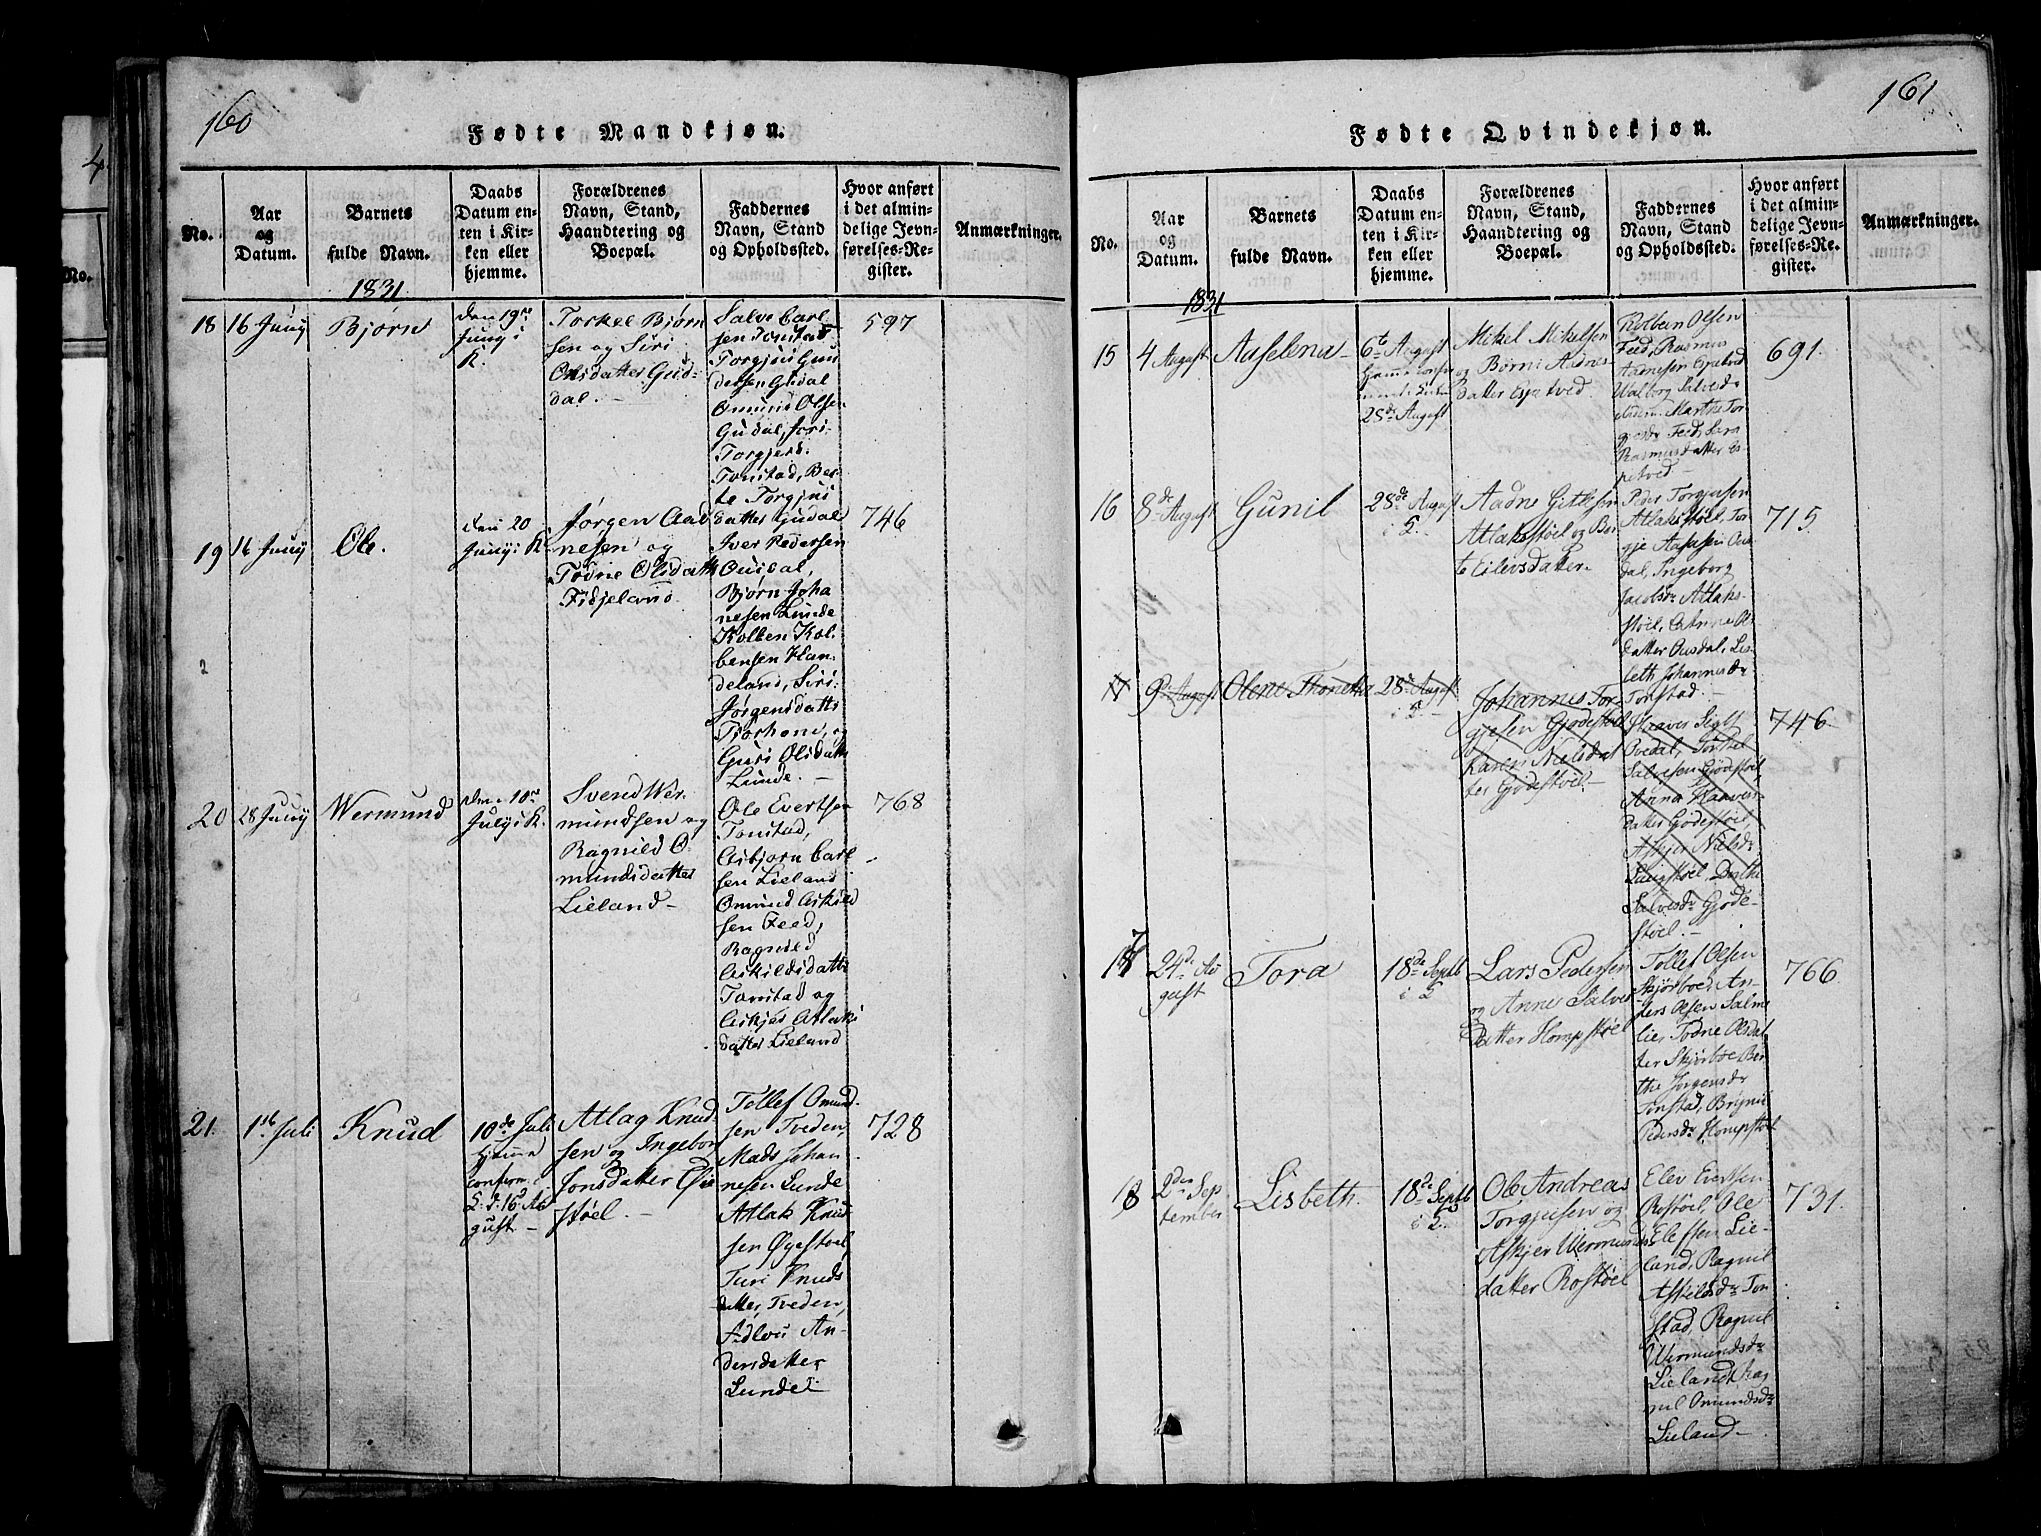 160
Fødte Mandkjøn.
No.
Aar
og
Datum.
Barnets
fulde Navn.
Daabs
Datum en-
ten i Kir-
ken eller
hjemme.
Forældrenes
Navn, Stand,
Haandtering og
Boepæl.
Faddernes
Navn, Stand
og Opholdssted.
Hvor anført
i det almin-
delige Jevn-
førelses-Re-
gister.
Anmærkninger.
1831
18
16 Juny
Bjørn
den 19de
Juny i
K.
Torkel Bjørn
sen og Siri
Olsdatter Gud-
dal.
Salve Carl
sen Tonstad
Torgjus Gun
dersen Gudal
Omund Olsen
Gudal, Siri
Torgjersd:
Tonstad, Ber-
te Torgjus
datter Gudal
597
19
16 Juny
Ole.
den 20
Juny i K.
Jørgen Aad
nesen og
Todne Olsdatt
Fidjeland
Iver Pedersen
Ousdal,
Bjørn Joha
nesen Lunde
Kolben Kol-
bensen Han-
deland, Siri
Jørgensdatt
Tjorhom, og
Guri Olsdatt
Lunde.
746
20
28 Juny
Wermund
den 10de
July i K.
Svend Wer-
mundsen og
Ragnild O-
mundsdatter
Lieland
Ole Evertsen
Tonstad,
Asbjørn Carl
sen Lieland
Omund Askild
sen Feed,
Ragnild
Askildsdatt
Tonstad og
Askjer Atlaks
datter Lieland
768
21.
1ste Juli
Knud
10de Juli
hjemme
confirm.
16d Au
gust.
Atlag Knud
sen og Ingebor
Jonsdatter Øie
støel.
Tollef Omund-
sen Tveden,
Mads Johan
nesen Lunde
Atlak Knud
sen Øyestøel
Turi Knuds
datter, Tveden,
Adlou An-
dersdatter
Lunde
728
161
Fødte Qvindekjøn.
No.
Aar
og
Datum.
Barnets
fulde Navn.
Daabs
Datum en-
ten i Kir-
ken eller
hjemme.
Forældrenes
Navn, Stand,
Haandtering og
Boepæl.
Faddernes
Navn, Stand
og Opholdssted.
Hvor anført
i det almin-
delige Jevn-
førelses-Re-
gister.
Anmærkninger.
1831
15
4 August
Aaselena
6te August
28de August
Mikel Mikelsen
og Børni Aadnes
datter Espetved
Kolben Olsen
Feed, Rasmus
Aadnesen Espetved
Walborg Salvesdr
Marthe Tor-
Feed, Sara
Rasmusdatter Es
petved
691.
16
8de August
Gunil
28de August
Aadne Gitlesen
Atlakstøel og Ber
te Eilevsdatter
Peder Torgjusen
Atlakstøel, Tor-
gje Aasesen Ous
dal, Ingeborg
Jacobsdr Atlaks-
støel, Ols
datter Ousdal, Lis
beth Johannisdr
Tonstad.
715.
17
9de August
Olene Thonette
28de August
Johannes Tor-
gjesen Gjødestøl
Karen Nielsdat
ter Gjødestøel
Haaver
Ovedal, Torkel
Salvesen Gjødestøel
Anna Haavers
datter Gjødestøel
Askjer Nielsdr
Langstøel, Dorthe
Salvesdr Gjøde-
støel.
746
17
24de Au
gust
Tora
18de Septb
Lars Pedersen
og Anne Salves
datter Hompstøel
Tollef Olsen
Skjørboe, An-
ders Olsen Salme
lie, Todne Olsdat
ter Skjørboe, Ber
the Jørgensdr
Tonstad, Brynil
Pedersdr Hompstøel
766
18
2den Sep
tember
Lisbeth.
18de Septb
Ole Andreas
Torgjusen og
Askjer Wermunds
datter Rostøel
Elev Evertsen
Rostøel, Ole
Elefsen Lie-
land, Ragnil
Askildsdr Ton
stad, Ragnil
Wermundsdr
Lieland Rag
nil Omundsdr
Lieland
731.